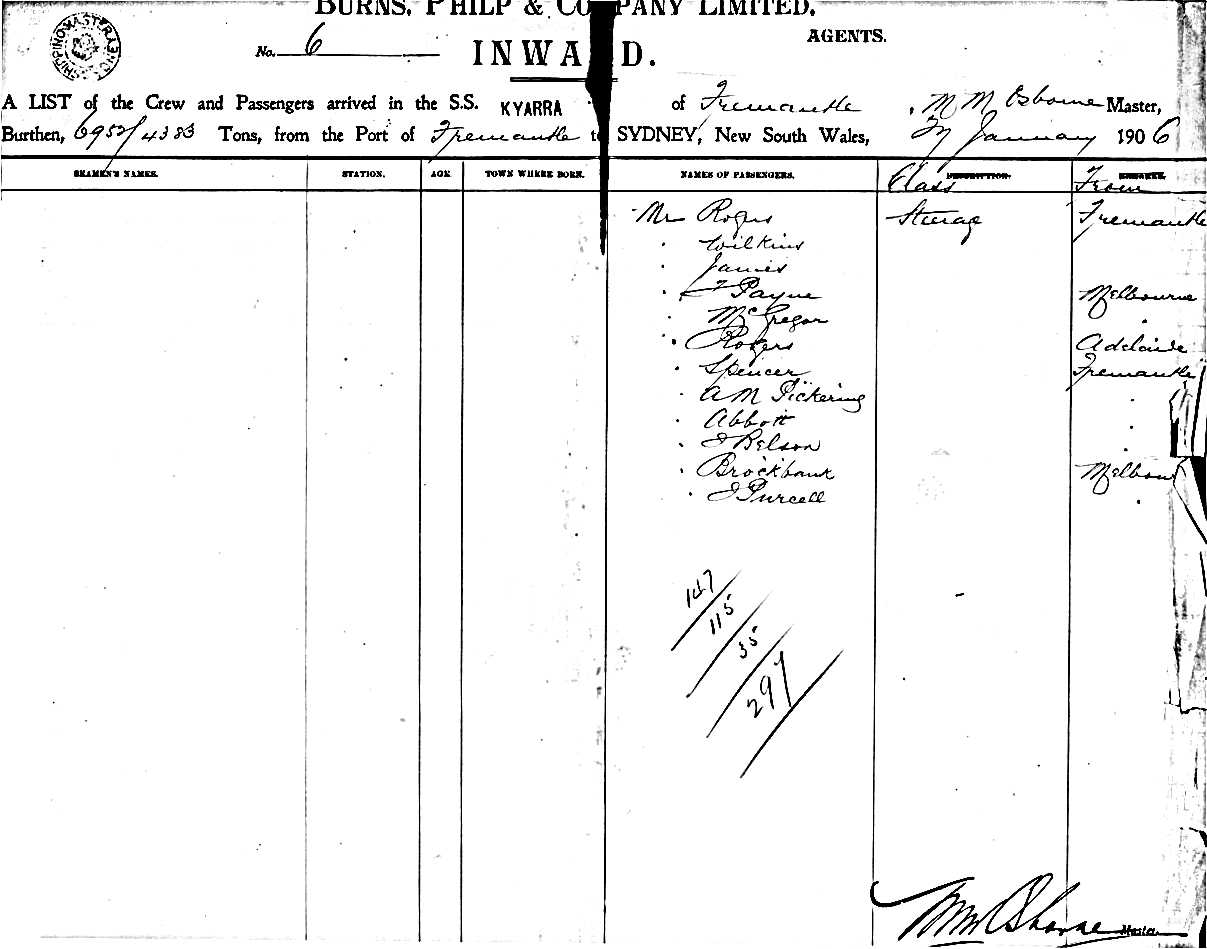 BURNS, PHILP & COMPANY LIMITED,
AGENTS.
SHIPPING MASTER SYDNEY
No. 6
INWARD.
A LIST of the Crew and Passengers arrived in the S.S. KYARRA of Fremantle, M M Osborne Master,
Burthen, 6952/4383 Tons, from the Port of Fremantle to SYDNEY, New South Wales, January 1906
SEAMEN'S NAMES. STATION. AGE TOWN WHERE BORN. NAMES OF PASSENGERS. Class From
Mr Rogers Steerage Fremantle
" Wilkins
" James
" F Payne Melbourne
" McGregor "
" Rogers Adelaide
" Spencer Fremantle
" A M Pickering "
" Abbott "
" J Belson
" Brockbank Melbour
" J Purcell "
147
115
35
297
M M Osborne Master